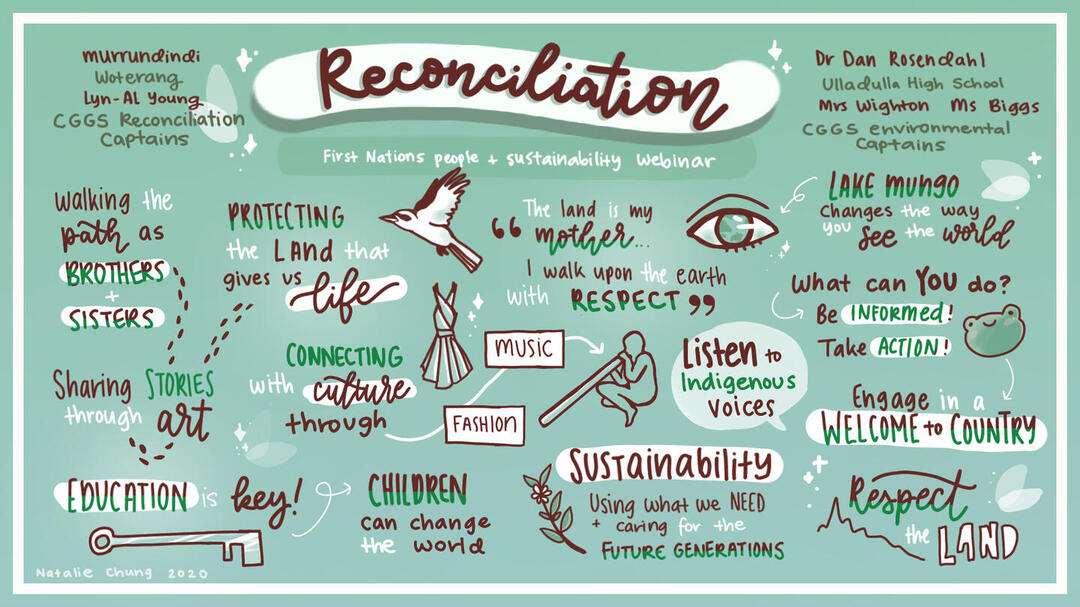 Reconciliation
First Nations people + sustainability webinar
murrundindi
Woterang
Lyn-Al Young
CGGS Reconciliation
Captains
Dr Dan Rosendahl
Ulladulla High School
Mrs Wighton Ms Biggs
CGGS environmental
Captains
walking the
path as
BROTHERS
+
SISTERS
PROTECTING
the LAND that
gives us
life
“The land is my
mother...
I walk upon the earth
with RESPECT”
LAKE mungo
changes the way
you see the world
What can YOU do?
Be INFORMED!
Take ACTION!
Engage in a
WELCOME to COUNTRY
Sharing STORIES
through art
CONNECTING
with culture
through
FASHION
MUSIC
Listen to
Indigenous
voices
EDUCATION is key!
CHILDREN
can change
the world
SUSTAINABILITY
Using what we NEED
+ caring for the
FUTURE GENERATIONS
Respect
the LAND
Natalie Chung 2020